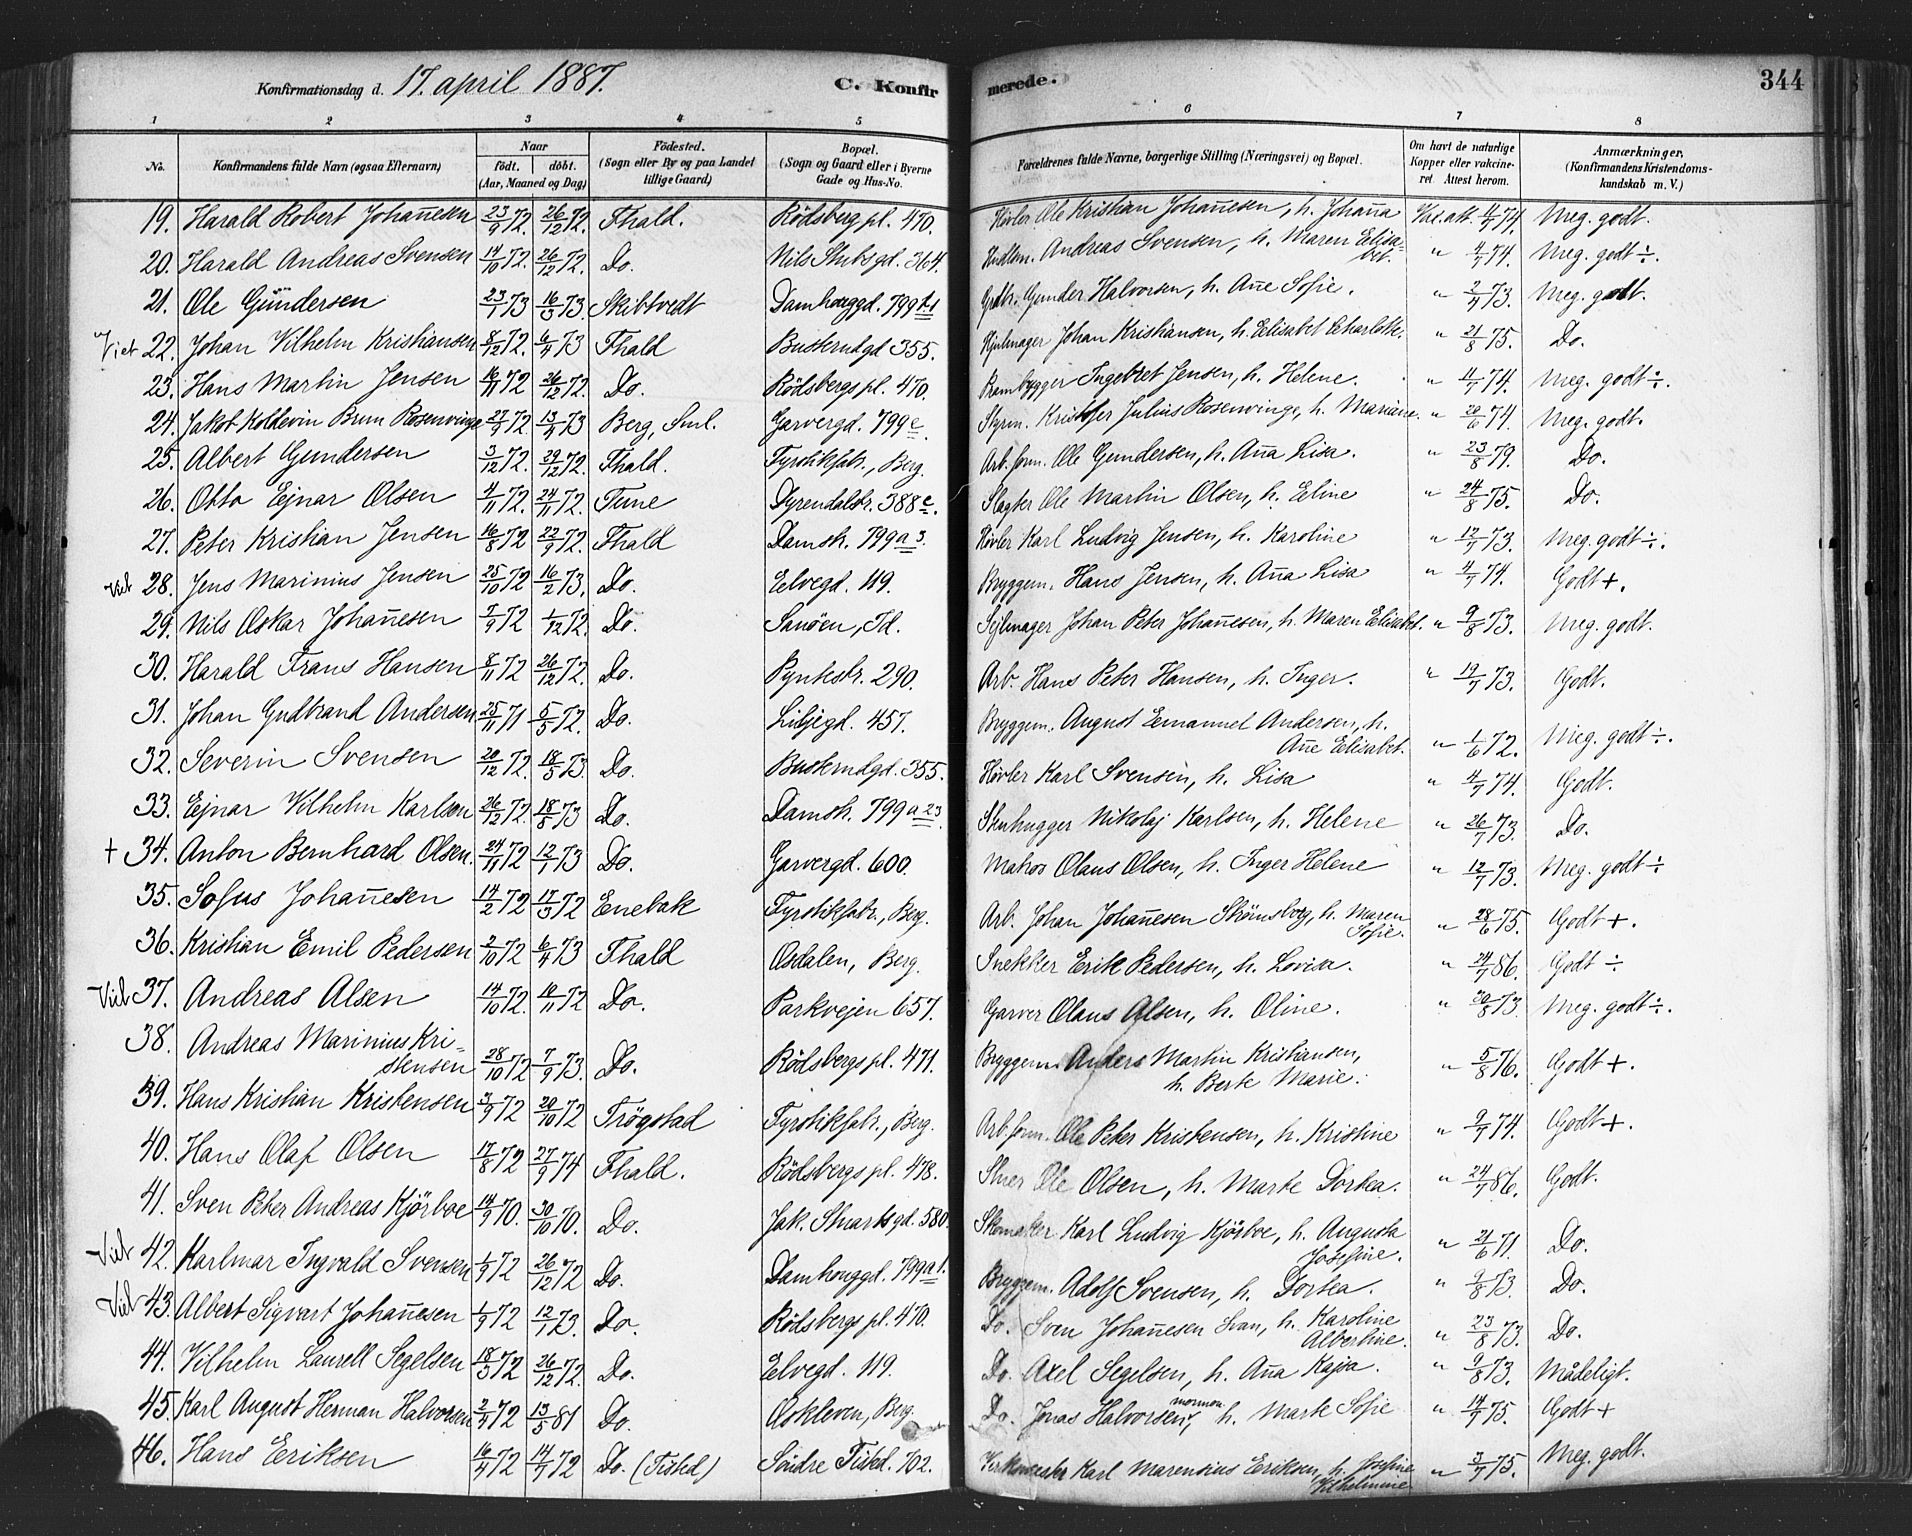 Konfirmationsdag d. 17. april 1887. C. Konfirmerede. 344
1 2 3 4 5 6 7 8
No. Konfirmandens fulde Navn (ogsaa Efternavn) Naar födt. döbt. (Aar, Maaned og Dag) Födested. (Sogn eller By og paa Landet tillige Gaard) Bopæl. (Sogn og Gaard eller i Byerne Gade og Hus-No. Forældrenes fulde Navne, borgerlige Stilling (Næringsvei) og Bopæl. Om havt de naturlige Kopper eller vakcineret. Attest herom. Anmærkninger, (Konfirmandens Kristendomskundskab m. V.)
19. Harald Robert Johan̄esen 23/9 72. 26/12 72. Fhald. Rödsberg pl. 470. Hövler Ole Kristian Johan̄esen, h. Johan̄a Vkc. att. 4/7 74. Meg. godt.
20. Harald Andreas Svensen 14/10 72. 26/12 72. Do. Nils Stubs gd. 364. Andreas Svensen, h. Maren Elisabet. " 4/7 74. Meg. godt ÷.
21. Ole Gundersen 23/1 73 16/3 73. Skibtvedt Damhauggd. 799 Gunder Halvorsen, h. An̄e Sofie. " 2/4 73. Meg. godt.
22. Johan Vilhelm Kristiansen 8/12 72. 6/4 73 Fhald Buskerudgd 355. Hjulmager Johan Kristiansen, h. Elisabet Charlotte. " 21/8 75. Do.
23. Hans Martin Jensen 16/11 72 26/12 72. Do. Rödsbergs pl. 470. Ingebret Jensen, h. Helene. " 11/7 74. Meg. godt ÷.
24. Jakob Koldevin Brun Rosenvinge 27/9 72. 13/4 73 Berg, Sml. Garvergd. 799 c. Styrm. Kristofer Julius Rosenvinge, h. Mariane. " 20/6 74. Meg. godt.
25. Albert Gundersen 3/12 72. 29/12 72. Fhald. Fyrstikfab., Berg. Arb. form. Ole Gundersen, h. An̄a Lisa. " 23/8 79. Do.
26. Otto Ejnar Olsen 4/11 72. 24/11 72. Tune Dyrendalstr. 388 c. Slagter Ole Martin Olsen, h. Eline " 24/8 75. Do.
27. Peter Kristian Jensen 16/8 72 22/9 72. Fhald Damstr. 799 a 3. Hövler Karl Ludvig Jensen, h. Karoline " 12/7 73. Meg. godt ÷.
28. Jens Marinius Jensen 25/10 72 16/2 73. Do. Elvegd. 119. Bryggem. Hans Jensen, h. An̄a Lisa " 4/7 74. Godt +.
29. Nils Oskar Johan̄esen 5/9 72 1/12 72. Do. Sanöen, Id. Sejlmager Johan Peter Johan̄esen, h. Maren Elisabet. " 9/8 73. Meg. godt.
30. Harald Frans Hansen 8/11 72 26/12 72. Do. Pyntestr. 290. Arb. Hans Peter Hansen, h. Inger. " 19/7 73. Godt.
31. Johan Gudbrand Andersen 25/11 71 5/5 72. Do. Liljegd. 457. Bryggem. August Emanuel Andersen, h. An̄e Elisabet. " 1/6 72. Meg. godt ÷.
32. Severin Svensen 20/12 72. 18/5 73. Do. Buskerudgd. 355. Hövler Karl Svensen, h. Lisa " 4/7 74. Godt.
33. Ejnar Vilhelm Karlsen 26/12 72. 18/8 73 Do. Damstr. 799 a 23. Stenhugger Nikolaj Karlsen, h. Helene " 26/7 73 Do.
+ 34. Anton Bernhard Olsen. 24/11 72 12/1 73 Do. Garvergd. 600. Matros Olaus Olsen, h. Inger Helene " 12/7 73. Meg. godt ÷
35. Sofus Johan̄esen 14/2 72 17/3 72 Enebak Fyrstikfabr., Berg. Arb. Johan Johan̄esen Skönsberg, h. Maren Sofie. " 28/6 75. Godt +.
36. Kristian Emil Pedersen 2/10 72 6/4 73 Fhald Osdalen, Berg. Snekker Erik Pedersen, h. Lovisa. " 24/7 86. Godt ÷
37. Andreas Alsen 14/10 72. 10/11 72 Do. Parkvejen 657. Garver Olaus Alsen, h. Oline. " 30/8 73. Meg. godt ÷.
38. Andreas Marinius Kristensen 28/10 72 7/9 73. Do. Rödsbergs pl. 471. Bryggem. Anders Martin Kristiansen, h. Berte Marie. " 5/8 76. Godt +.
39. Hans Kristian Kristensen 3/9 72 20/10 72 Trögstad Fyrstikfabr., Berg. Arb. form. Ole Peter Kristensen, h. Kristine " 9/7 74. Godt +.
40. Hans Olaf Olsen 17/8 72 27/9 74 Fhald. Rödsbergs pl. 478. Stuer Ole Olsen, h. Marte Dortea. " 24/7 86. Godt.
41. Sven Peter Andreas Kjörboe 14/9 70. 30/10 70. Do. Jak. Stuarts gd. 580. Skomaker Karl Ludvig Kjörboe, h. Augusta Josefine. " 21/6 71. Do.
42. Karlmar Ingvald Svensen 1/9 72 26/12 72 Do. Damhauggd. 799 a 1. Bryggem. Adolf Svensen, h. Dortea. " 9/8 73. Do.
43. Albert Sigvart Johan̄esen 1/9 72 12/1 73. Do. Rödsbergs pl. 470. Do. Sven Johan̄esen Svan, h. Karoline Albertine. " 23/8 73. Do.
44. Vilhelm Laurell Segelsen 18/3 72 26/12 72. Do. Elvegd. 119. Do. Axel Segelsen, h. An̄a Kajsa. " 9/8 73. Mådeligt.
45. Karl August Herman Halvorsen 2/4 72 13/5 81 Do. Öskleven, Berg. Do. Jonas Halvorsen, mormon, h. Marte Sofie " 14/7 75. Godt +
46. Hans Eriksen 16/4 72 14/7 72 Do. (Tisted) Söndre Tisted. 702. Karl Marensius Eriksen, h. Josefine Vilhelmine " 3/7 75. Meg. godt.